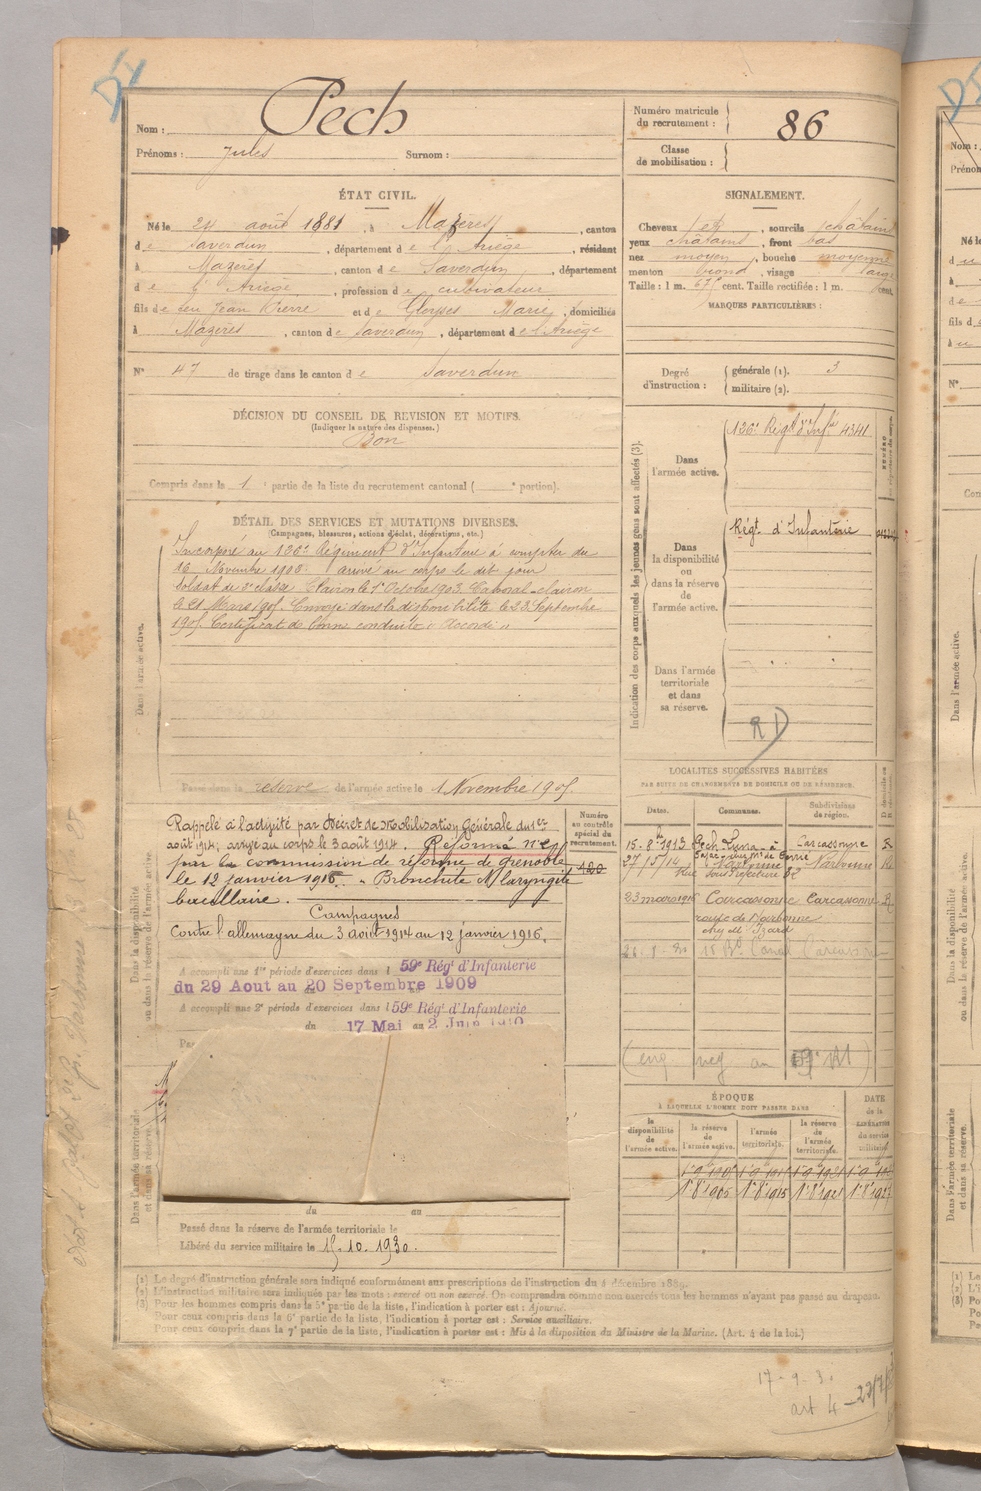 Pech
Nom :
Prénoms : Jules Surnom :
Numéro matricule
du recrutement :
86
Classe
de mobilisation :
ÉTAT CIVIL.
Né le 24 août 1881, à Mazères, canton
de Saverdun, département de l'Ariège, résidant
à Mazères, canton de Saverdun, département
de l'Ariège, profession de cultivateur
fils de feu Jean Pierre et de Marie, domiciliés
à Mazères, canton de Saverdun, département de l'Ariège
N° 47 de tirage dans le canton de Saverdun
SIGNALEMENT.
Cheveux et, sourcils châtain
yeux châtains, front bas
nez moyen, bouche moyenne
menton rond, visage large
Taille : 1 m. 67 cent. Taille rectifiée : 1 m. cent.
MARQUES PARTICULIÈRES :
Degré
d'instruction :
générale (1). 3
militaire (2).
DÉCISION DU CONSEIL DE REVISION ET MOTIFS.
(Indiquer la nature des dispenses.)
Bon
Compris dans la 1 e partie de la liste du recrutement cantonal ( e portion).
DÉTAIL DES SERVICES ET MUTATIONS DIVERSES.
(Campagnes, blessures, actions d'éclat, décorations, etc.)
Dans l'armée active.
Incorporé au 126e Régiment d'Infanterie à compter du
16 Novembre 1902. arrivé au corps le dit jour
soldat de 2e classe. Clairon le 1er Octobre 1903. Caporal clairon
le 21 Mars 1905. Envoyé dans la disponibilité le 23 Septembre
1905. Certificat de bonne conduite "Accordé"
Passé dans la réserve de l'armée active le 1 Novembre 1905
Indication des corps auxquels les jeunes gens sont affectés (3).
Dans
l'armée active.
126e Régt d'Infie 4341
Dans
la disponibilité
ou
dans la réserve
de
l'armée active.
Régt. d'Infanterie
Dans l'armée
territoriale
et dans
sa réserve.
Dans la disponibilité
ou dans la réserve de l'armée active.
Rappelé à l'activité par Décret de Mobilisation Générale du 1er
août 1914, arrivé au corps le 3 août 1914. Réformé n°
par la commission de réforme de Grenoble
le 12 janvier 1916. Bronchite laryngite
bacillaire.
Campagnes
Contre l'allemagne du 3 août 1914 au 12 janvier 1916.
A accompli une 1re période d'exercices dans l 59e Régt d'Infanterie
du 29 Aout au 20 Septembre 1909
A accompli une 2e période d'exercices dans l 59e Régt d'Infanterie
du 17 Mai au 2 Juin 1910
Numéro
au contrôle
spécial du
recrutement.
120
LOCALITÉS SUCCESSIVES HABITÉES
PAR SUITE DE CHANGEMENTS DE DOMICILE OU DE RÉSIDENCE.
Dates.
Communes.
Subdivisions
de région.
15-8-1913 Pech Luna Carcassonne
27/5/14 Narbonne Narbonne
23 mars 1916 Carcassonne Carcassonne R
route de Narbonne
chez M. Izard
ÉPOQUE
À LAQUELLE L'HOMME DOIT PASSER DANS
la
disponibilité
de
l'armée active.
la réserve
de
l'armée active.
l'armée
territoriale.
la réserve
de
l'armée
territoriale.
DATE
de la
LIBÉRATION
du service
militaire.
1-8-1905 1-8-1915 1-8-1921 1-8-1927
Dans l'armée territoriale
et dans sa réserve.
du au
Passé dans la réserve de l'armée territoriale le
Libéré du service militaire le 15.10.1930.
(1) Le degré d'instruction générale sera indiqué conformément aux prescriptions de l'instruction du 4 décembre 1889.
(2) L'instruction militaire sera indiquée par les mots : exercé ou non exercé. On comprendra comme non exercés tous les hommes n'ayant pas passé au drapeau.
(3) Pour les hommes compris dans la 5e partie de la liste, l'indication à porter est : Ajourné.
Pour ceux compris dans la 6e partie de la liste, l'indication à porter est : Service auxiliaire.
Pour ceux compris dans la 7e partie de la liste, l'indication à porter est : Mis à la disposition du Ministre de la Marine. (Art. 4 de la loi.)
17-9-3
art 4